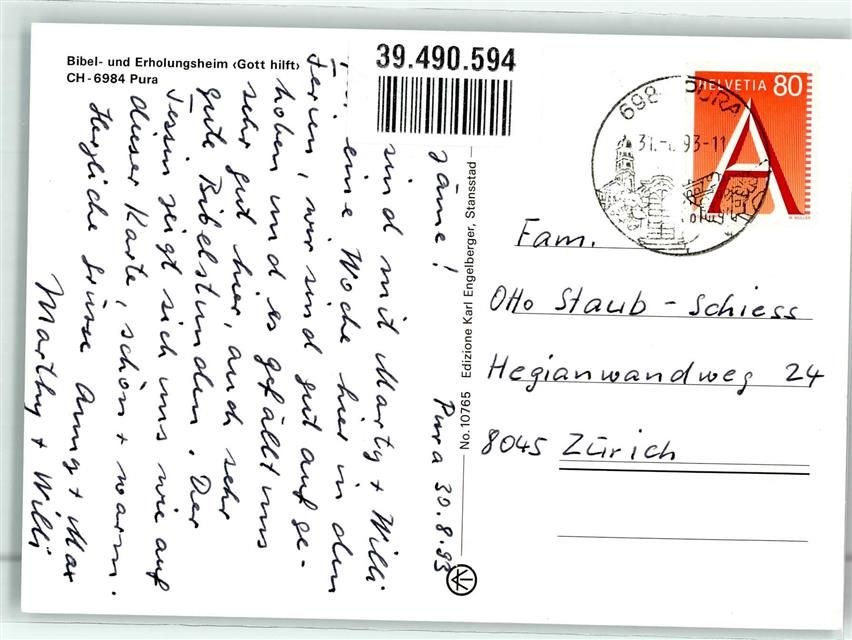 Bibel- und Erholungsheim ‹Gott hilft›
CH-6984 Pura
39.490.594
HELVETIA 80
698 PURA
31.-8.93-11
Pura 30.8.93
zäme!
sind mit Marty + Willi
eine Woche hier in den
Ferien, wir sind gut aufge-
hoben und es gefällt uns
sehr gut hier, auch sehr
gute Bibelstunden. Der
Tessin zeigt sich uns wie auf
dieser Karte, schön + warm.
Herzliche Grüsse Anny + Max
Marthy + Willi
No. 10765 Edizione Karl Engelberger, Stansstad
Fam.
Otto Staub - Schiess
Hegianwandweg 24
8045 Zürich